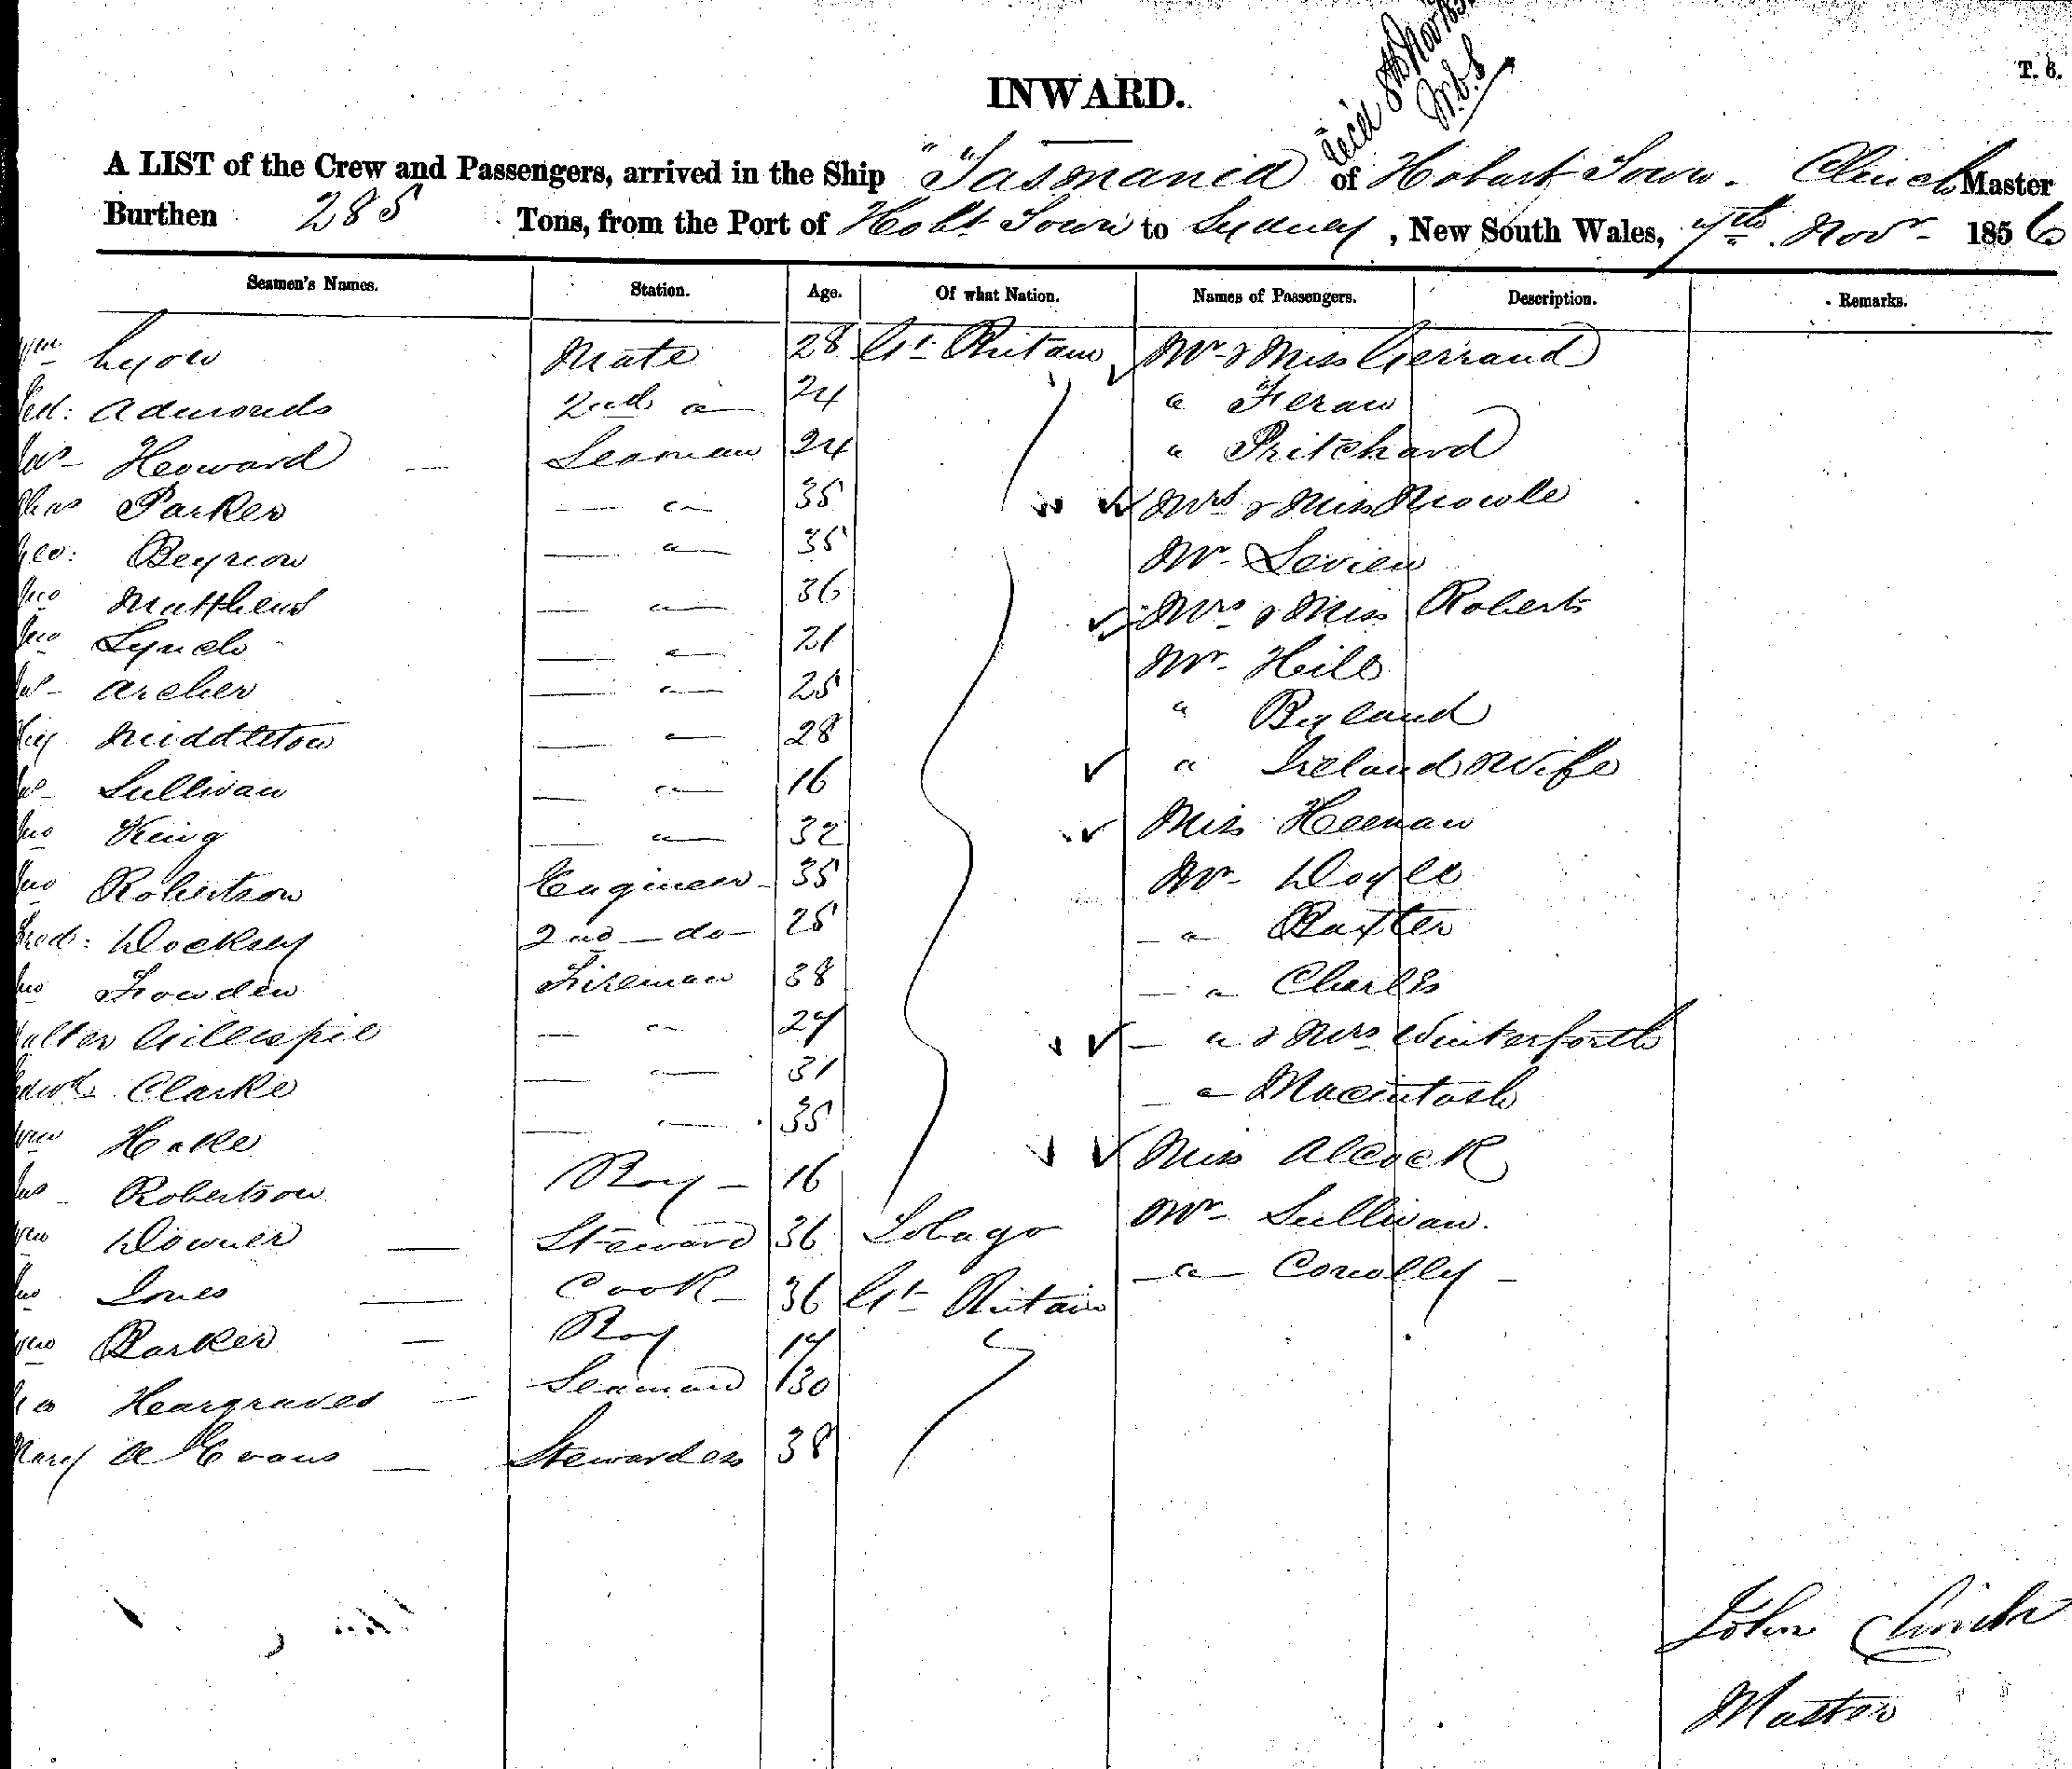 T. 6.
Rec'd 8th Nov 185
INWARD.
A LIST of the Crew and Passengers, arrived in the Ship "Tasmania" of Hobart Town. Clinch Master
Burthen 285 Tons, from the Port of Hobt Town to Sydney, New South Wales, 7th Novr 1856
Seamen's Names. Station. Age. Of what Nation. Names of Passengers. Description. Remarks.
Wm Lyow Mate 28 Gt Britain Mr & Miss Gerrand
Ed: Admonds 2nd " 24 " Feraw
Jas Heoward Seaman 24 " Pritchard
Chas Parker " 35 Mrs & Miss Nowlle
Geo: Beynow " 35 Mr Levien
Jno Matthews " 36 Mrs & Miss Roberts
Jno Lynch " 21 Mr Hill
Jas Archer " 25 " Byland
Hy Middleton " 28 " Ireland & Wife
Jas Sullivan " 16 Miss Heenan
Jno King " 32 Mr Doyle
Jno Robertson Engineer 35 " Baxter
Fred: Docksey 2nd do 25 " Charles
Jno Fowden Fireman 38 " & Mrs Winterforth
Walter Gillespie " 27 " Macintosh
Edwd Clarke " 31 Miss Alcock
Wm Hake " 35 Mr Sullivan.
Jas Robertson Boy 16 " Conolly
Wm Downer Steward 36 Tobago
Jno Jones Cook 36 Gt Britain
Wm Barker Boy 17
Geo Heargraves Seaman 30
Mary A Evans Stewardess 38
John Clinch
Master